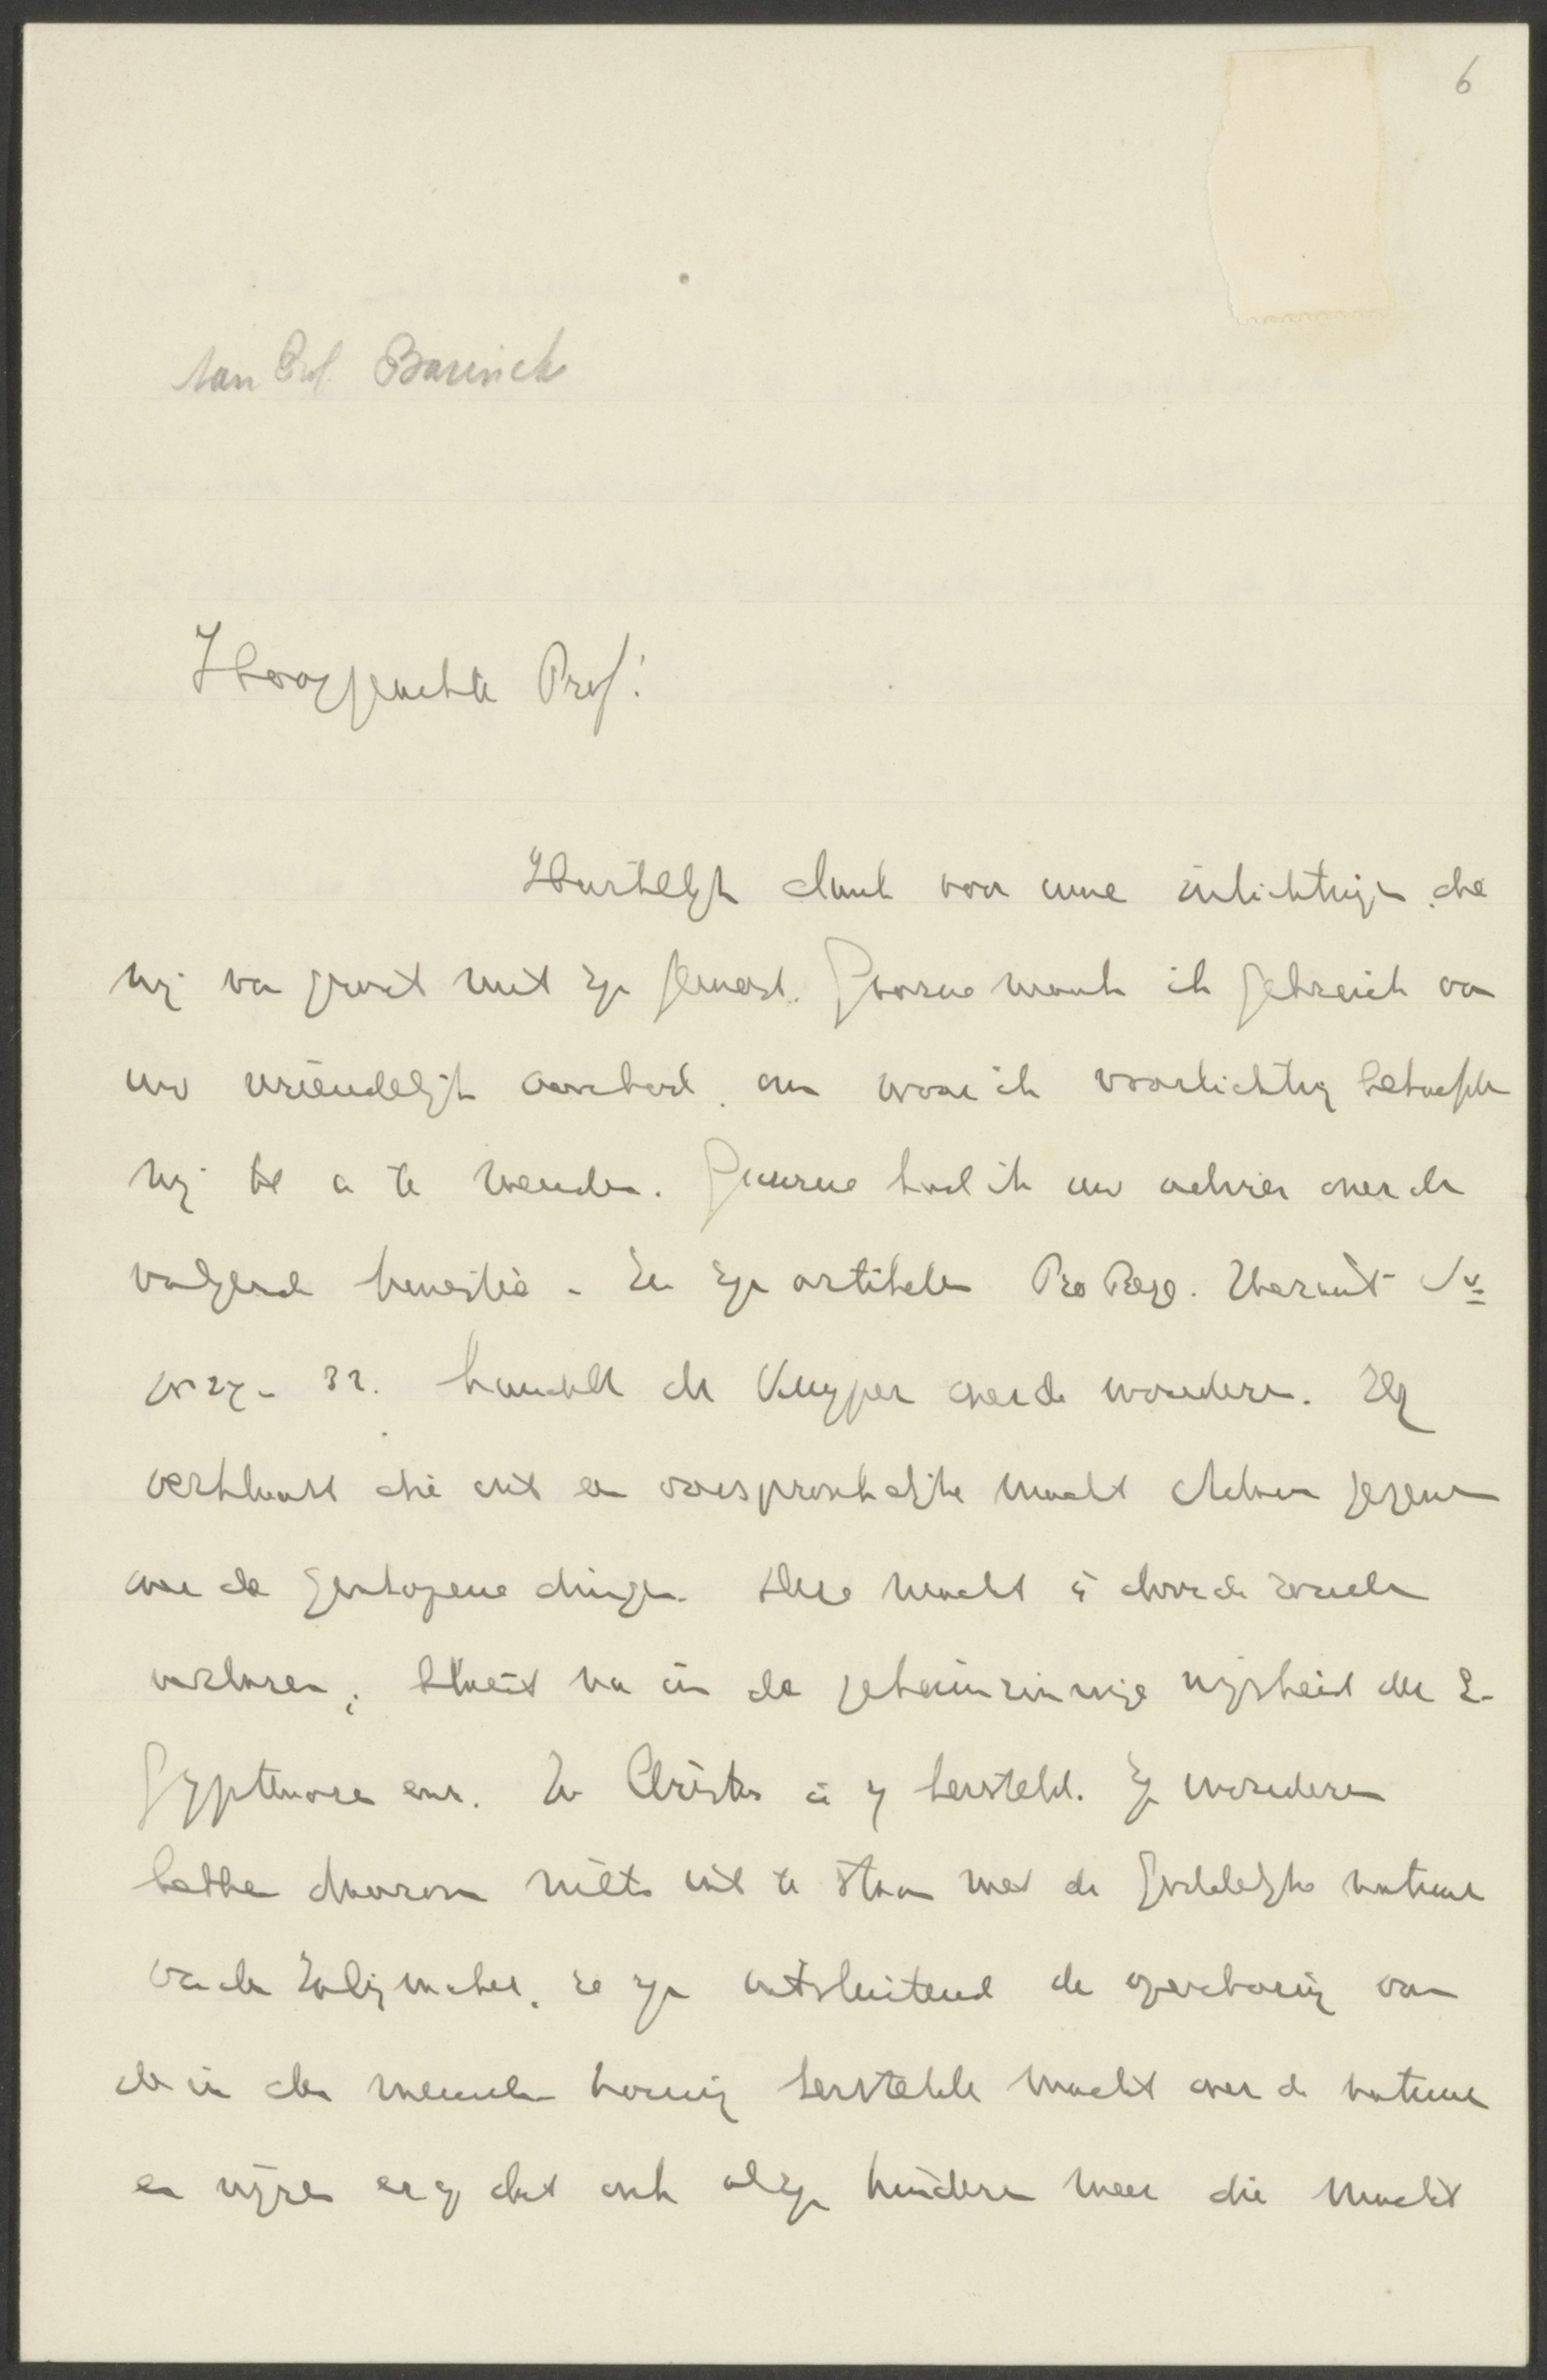 6
Aan Prof. Bavinck
Hooggeachte Prof!
Hartelijk dank voor uwe inlichtingen die
mij van groot nut zijn geweest. Gaarne maak ik gebruik van
uw vriendelijk aanbod om waar ik voorlichting behoefde
mij tot u te wenden. Gaarne had ik uw advies over de
volgende kwestie. In zijn artikelen Pro Rege. Heraut
27 - 32. handelt dr Kuyper over de wonderen. Hij
verklaart die uit een oorspronkelijke macht Adam gegeven
over de geschapene dingen. Deze macht is door de zonde
verloren, bloeit na in de geheimzinnige wijsheid der E-
gyptenaren enz. In Christus is zij hersteld. Zijn wonderen
hebben daarom niets uit te staan met de goddelijke natuur
van den Zaligmaker, ze zijn uitsluitend de openbaring van
de in den mensch koning herstelde macht over de natuur
en wijzen erop dat ook al zijn kinderen weer die macht